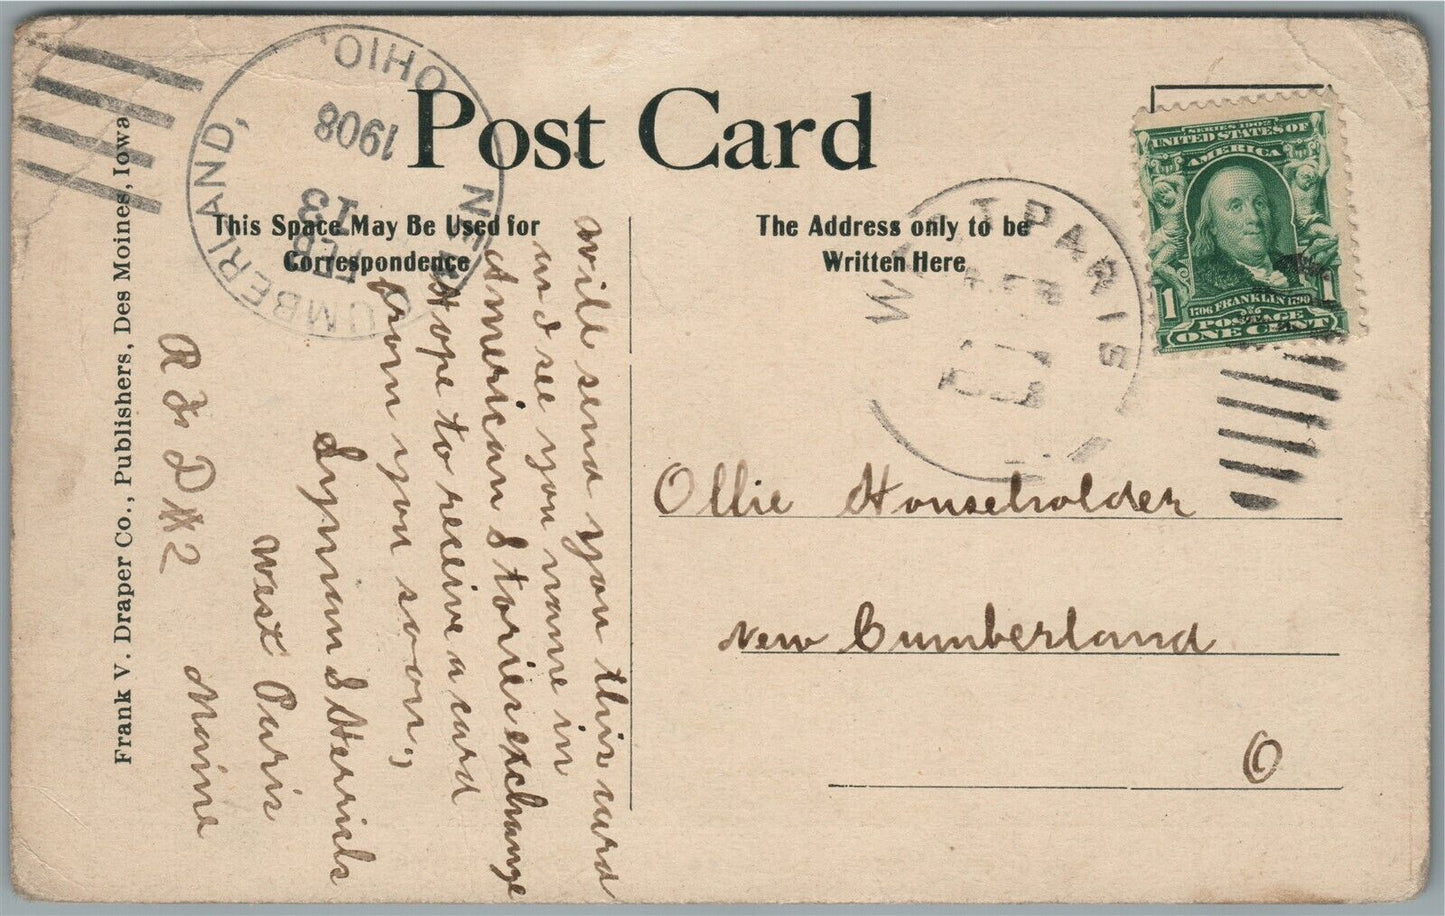 Post Card
This Space May Be Used for
Correspondence
The Address only to be
Written Here
NEW CUMBERLAND, OHIO,
FEB
13
1908
WEST PARIS
SERIES 1902
UNITED STATES OF
AMERICA
1706 FRANKLIN 1790
POSTAGE
1 ONE CENT 1
will send you this card
and see you name in
American Stories exchange
Hope to receive a card
from you soon,
Lyman S Herrick
West Paris
Maine
R F D #2
Ollie Householder
New Cumberland
O
Frank V. Draper Co., Publishers, Des Moines, Iowa